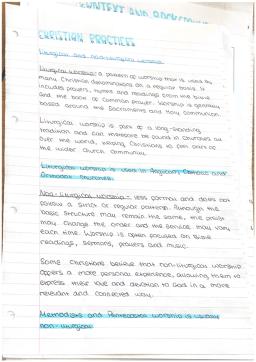 CONTEXT AND
CHRISTIAN PRACTICES
Liturgical and non-liturgical worship
Liturgical worship: a pattern of worship that is used by
many Christian denominations on a regular basis. It
includes prayers, hymns and readings from the Bible
and the book of common prayer. Worship is generally
based around the Sacraments and Holy Communion.
Liturgical worship is part of a long-standing
tradition and can therefore be found in churches all
over the world, helping Christians to feel part of
the wider Church community.
Liturgical worship is used in Anglican, Catholic and
Orthodox churches.
Non-liturgical worship: less formal and does not
follow a strict or regular pattern. Although the
basic structure may remain the same, the priest
may change the order and the service may vary
each time. Worship is often focused on Bible
readings, sermons, prayers and music.
Some Christians believe that non-liturgical worship
offers a more personal experience, allowing them to
express their love and devotion to God in a more
relevant and connected way.
Methodists and Pentecostal worship is usually
non-liturgical